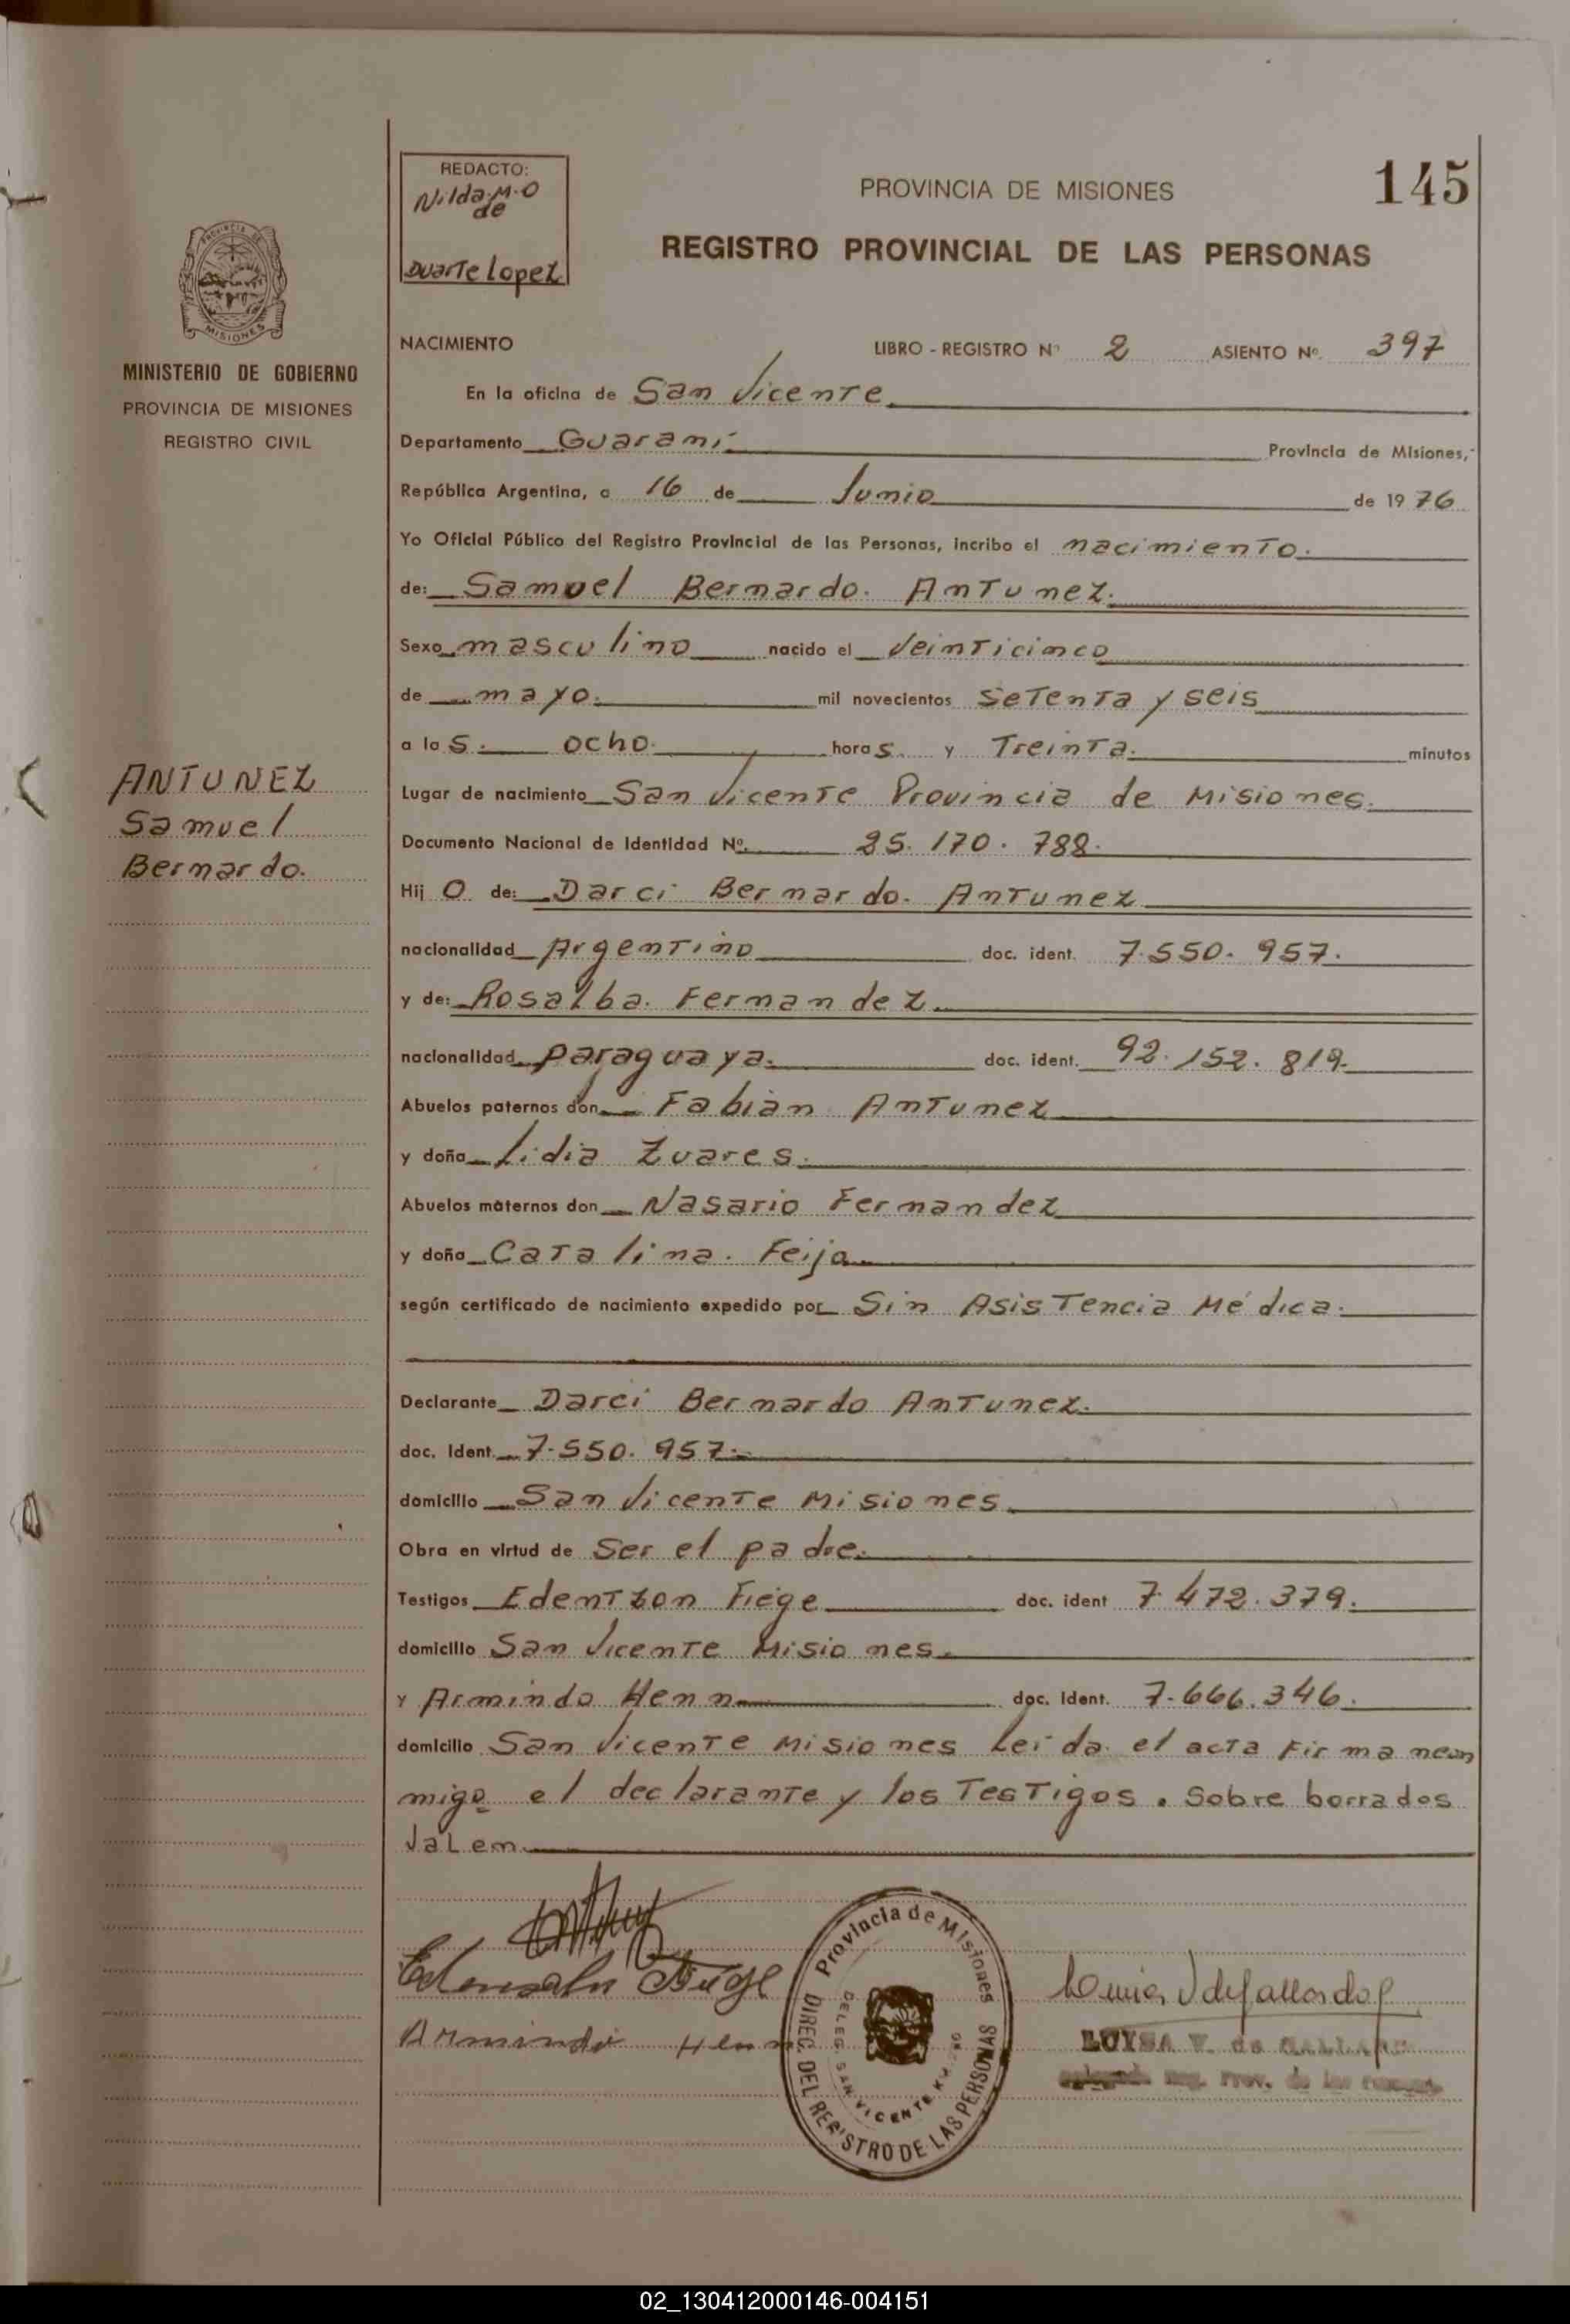 REDACTO:
Nilda.M.O
de
Duarte Lopez
PROVINCIA DE MISIONES
145
REGISTRO PROVINCIAL DE LAS PERSONAS
MISIONES
MINISTERIO DE GOBIERNO
PROVINCIA DE MISIONES
REGISTRO CIVIL
NACIMIENTO LIBRO - REGISTRO Nº 2 ASIENTO Nº. 397
En la oficina de San Vicente
Departamento Guaraní Provincia de Misiones,
República Argentina, a 16 de Junio de 1976
Yo Oficial Público del Registro Provincial de las Personas, incribo el nacimiento.
de: Samuel Bernardo. Antunez.
Sexo masculino nacido el Veinticinco
de mayo. mil novecientos setenta y seis
a las. ocho. horas. y Treinta. minutos
ANTUNEZ
Samuel
Bernardo.
Lugar de nacimiento San Vicente Provincia de Misiones.
Documento Nacional de Identidad Nº. 25.170.788.
Hijo de: Darci Bernardo. Antunez
nacionalidad Argentino doc. ident. 7.550.957.
y de: Rosalba. Fernandez.
nacionalidad paraguaya. doc. ident. 92.152.819.
Abuelos paternos don Fabián Antunez
y doña Lidia Zuares.
Abuelos maternos don Nasario Fernandez
y doña Catalina. Feijo
según certificado de nacimiento expedido por Sin Asistencia Médica.
Declarante Darci Bernardo Antunez.
doc. Ident. 7.550.957.
domicilio San Vicente Misiones
Obra en virtud de ser el padre.
Testigos Edentzon Fiege doc. ident 7.472.379.
domicilio San Vicente Misiones.
y Armindo Henn doc. Ident. 7.666.346.
domicilio San Vicente Misiones Leída el acta Firmanean
migo el declarante y los Testigos. Sobre borrados
Valen.
Armindo Henn
Provincia de Misiones
DIREC. DEL REGISTRO DE LAS PERSONAS
DELEG. SAN VICENTE
LUISA V. de GALLARDO
Prov. de las
02_130412000146-004151